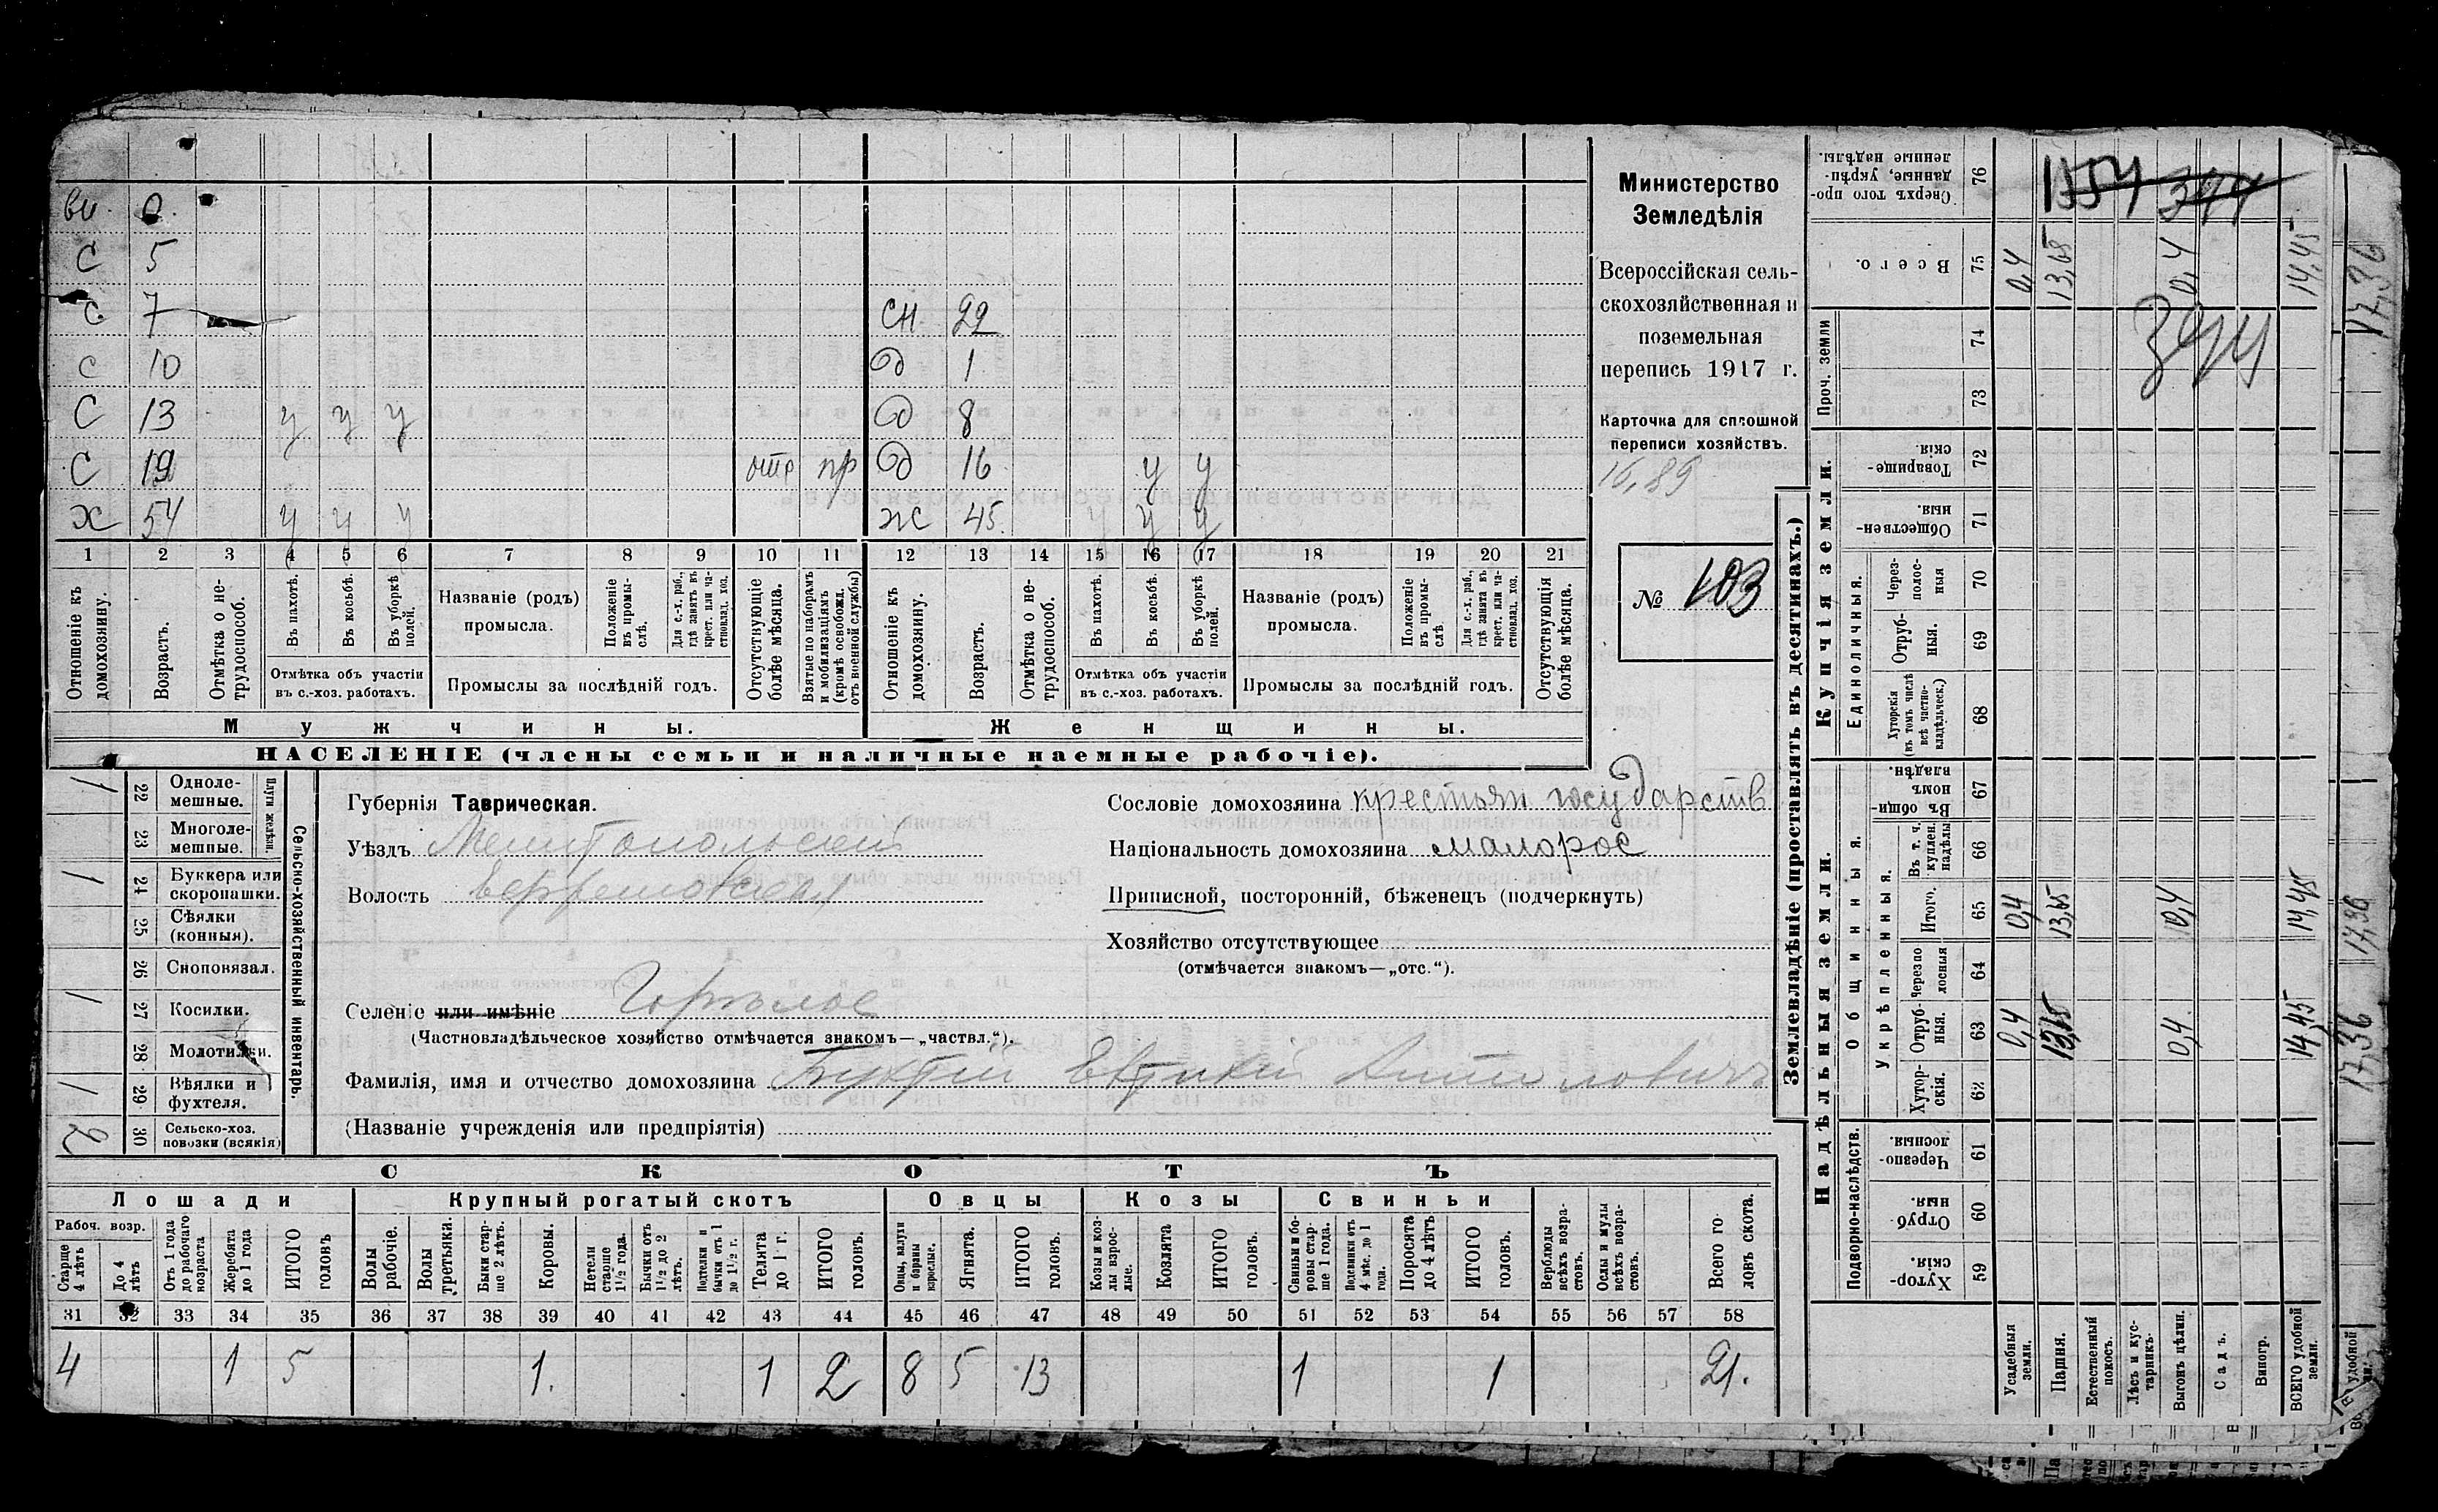 вн. 0.
С 5
С 7 сн 22
С 10 д 1
С 13 у у у д 8
С 19 отс пр д 16 у у
х 54 у у у ж 45 у у у
1 2 3 4 5 6 7 8 9 10 11 12 13 14 15 16 17 18 19 20 21
Отношеніе къ домохозяину.
Возрастъ.
Отмѣтка о не-трудоспособ.
Въ пахотѣ.
Въ косьбѣ.
Въ уборкѣ полей.
Отмѣтка объ участіи
въ с.-хоз. работахъ.
Названіе (родъ)
промысла.
Положеніе въ промы-слѣ.
Для с.-х. раб., гдѣ занятъ въ крест. или ча-стновлад. хоз.
Промыслы за послѣдній годъ.
Отсутствующіе болѣе мѣсяца.
Взятые по наборамъ и мобилизаціямъ (кромѣ освобожд. отъ военной службы)
Отношеніе къ домохозяину.
Возрастъ.
Отмѣтка о не-трудоспособ.
Въ пахотѣ.
Въ косьбѣ.
Въ уборкѣ полей.
Отмѣтка объ участіи
въ с.-хоз. работахъ.
Названіе (родъ)
промысла.
Положеніе въ промы-слѣ
Для с.-х. раб., гдѣ занята въ крест. или ча-стновлад. хоз.
Промыслы за послѣдній годъ.
Отсутствующія болѣе мѣсяца.
Мужчины. Женщины.
НАСЕЛЕНІЕ (члены семьи и наличные наемные рабочіе).
Министерство
Земледѣлія
Всероссійская сель-
скохозяйственная и
поземельная
перепись 1917 г.
Карточка для сплошной
переписи хозяйствъ.
16,89
№ 103
Сельско-хозяйственный инвентарь.
Плуги желѣзн.
1 22 Одноле-мешные.
23 Многоле-мешные.
1 24 Буккера или скоропашки.
25 Сѣялки (конныя).
26 Сноповязал.
1 27 Косилки.
28 Молотилки.
1 29 Вѣялки и фухтеля.
2 30 Сельско-хоз. повозки (всякія)
Губернія Таврическая.
Уѣздъ Мелитопольскій
Волость
Селеніе или имѣніе Горѣлое
(Частновладѣльческое хозяйство отмѣчается знакомъ—„частвл.“).
Фамилія, имя и отчество домохозяина
(Названіе учрежденія или предпріятія)
Сословіе домохозяина крестьян государств
Національность домохозяина малорос
Приписной, посторонній, бѣженецъ (подчеркнуть)
Хозяйство отсутствующее
(отмѣчается знакомъ—„отс.“).
СКОТЪ
Лошади Крупный рогатый скотъ Овцы Козы Свиньи
Рабоч. возр.
Старше 4 лѣтъ
До 4 лѣтъ
Отъ 1 года до рабочаго возраста
Жеребята до 1 года
ИТОГО головъ
Волы рабочіе.
Волы третьяки.
Быки стар-ше 2 лѣтъ.
Коровы.
Нетели старше 1½ года.
Бычки отъ 1½ до 2 лѣтъ.
Подтелки и бычки отъ 1 до 1½ г.
Телята до 1 г.
ИТОГО головъ.
Овцы, валухи и бараны взрослые.
Ягнята.
ИТОГО головъ.
Козы и коз-лы взрос-лые.
Козлята
ИТОГО головъ.
Свиньи и бо-ровы стар-ше 1 года.
Подсвинки отъ 4 мѣс. до 1 года.
Поросята до 4 лѣтъ
ИТОГО головъ.
Верблюды всѣхъ возра-стовъ.
Ослы и мулы всѣхъ возра-стовъ.
Всего го-ловъ скота.
31 32 33 34 35 36 37 38 39 40 41 42 43 44 45 46 47 48 49 50 51 52 53 54 55 56 57 58
4 1 5 1. 1 2 8 5 13 1 1 21.
Землевладѣніе (проставлять въ десятинахъ.)
Надѣльныя земли. Купчія земли.
Подворно-наслѣдств.
Общинныя.
Укрѣпленныя.
Единоличныя.
Проч. земли
Хутор-скія. 59
Отруб-ныя. 60
Черезпо-лосныя. 61
Хутор-скія. 62
Отруб-ныя. 63 0,4 13,65 0,4 14,45 17,36
Черезпо-лосныя 64
Итого. 65 0,4 13,65 0,4 14,45 17,36
Въ т. ч. куплен. надѣлы 66
Въ общин-номъ владѣн. 67
Хуторскія (въ томъ числѣ всѣ частно-владѣльческ.) 68
Отруб-ныя. 69
Через-полос-ныя 70
Обществен-ныя. 71
Товарище-скія 72
73
74
Всего. 75 0,4 13,65 0,4 14,45 17,36
Сверхъ того про-данные, укрѣп-ленные надѣлы. 76
1354 344
344
Усадебныя земли.
Пашня.
Естественный покосъ.
Лѣсъ и кус-тарникъ.
Выгонъ цѣлин.
Садъ.
Виногр.
ВСЕГО удобной земли.